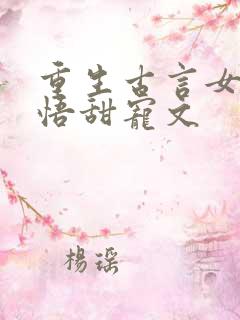 重生古言女
悟甜寵文
楊瑶